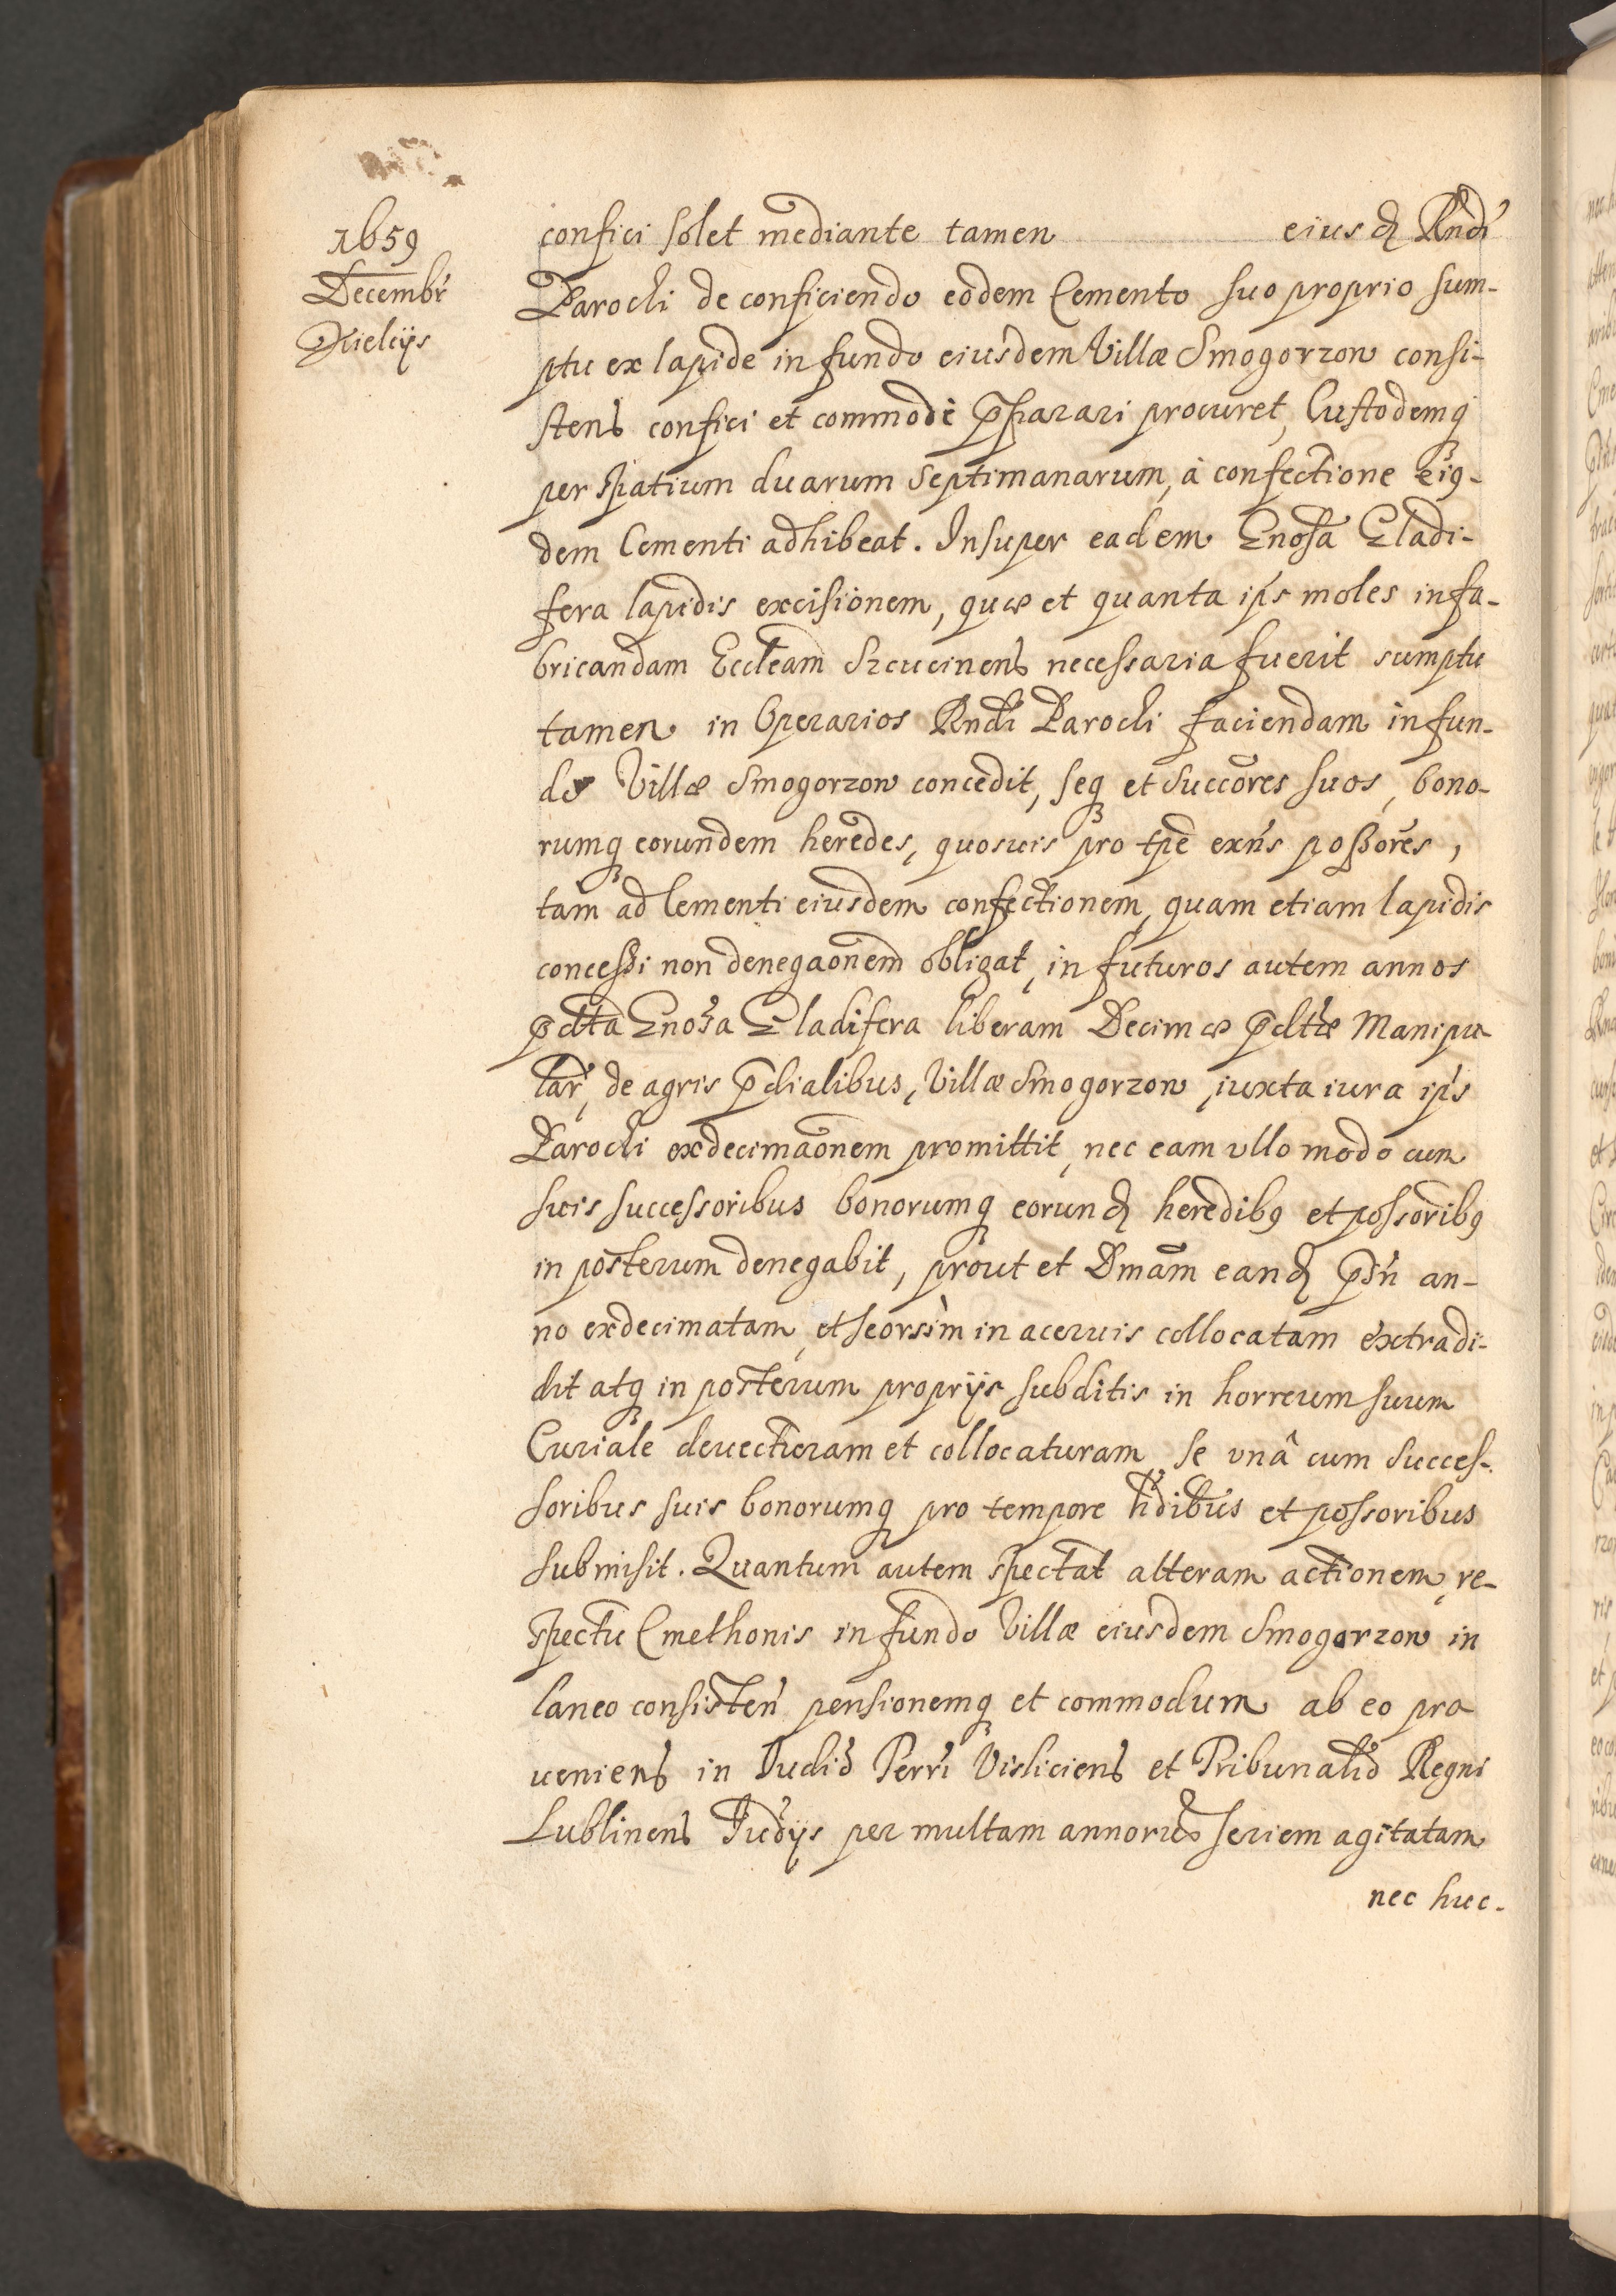 1659
Decembr
Kielcijs
confici solet mediante tamen eiusd Rndi
Parochi de conficiendo eodem Cemento suo proprio sum-
ptu ex lapide in fundo eiusdem Villæ Smogorzow consi-
stens confici et commodè pparari procuret, Custodemq
per spatium duarum septimanarum, à confectione eig-
dem Cementi adhibeat. Insuper eadem Gnosa Gladi-
fera lapidis excisionem, quæ et quanta ips moles in fa-
bricandam Eccleam Szcucinens necessaria fuerit sumptu
tamen in Operarios Rndi Parochi faciendam in fun-
do Villæ Smogorzow concedit, seq et succores suos, bono-
rumq eorundem heredes, quosuis pro tpe exns possores,
tam ad Cementi eiusdem confectionem, quam etiam lapidis
concessi non denegaonem obligat, in futuros autem annos
pdta Gnosa Gladifera liberam Decimæ pdtæ Manipu
lar, de agris pdialibus, Villæ Smogorzow, iuxta iura ips
Parochi exdecimaonem promittit, nec eam vllo modo cum
suis successoribus bonorumq eorund heredibg et possoribg
in posterum denegabit, prout et Dmam eand psn an-
no exdecimatam, et seorsim in aceruis collocatam extradi-
dit atq in posterum proprijs subditis in horreum suum
Curiale deuecturam et collocaturam se vnâ cum succes-
soribus suis bonorumq pro tempore hdibus et possoribus
submisit. Quantum autem spectat alteram actionem, re-
spectu Cmethonis in fundo Villæ eiusdem Smogorzow in
laneo consisten pensionemq et commodum ab eo pro
ueniens in Iudis Terri Visliciens et Tribunalis Regni
Lublinens Iudijs per multam annoru seriem agitatam
nec huc-